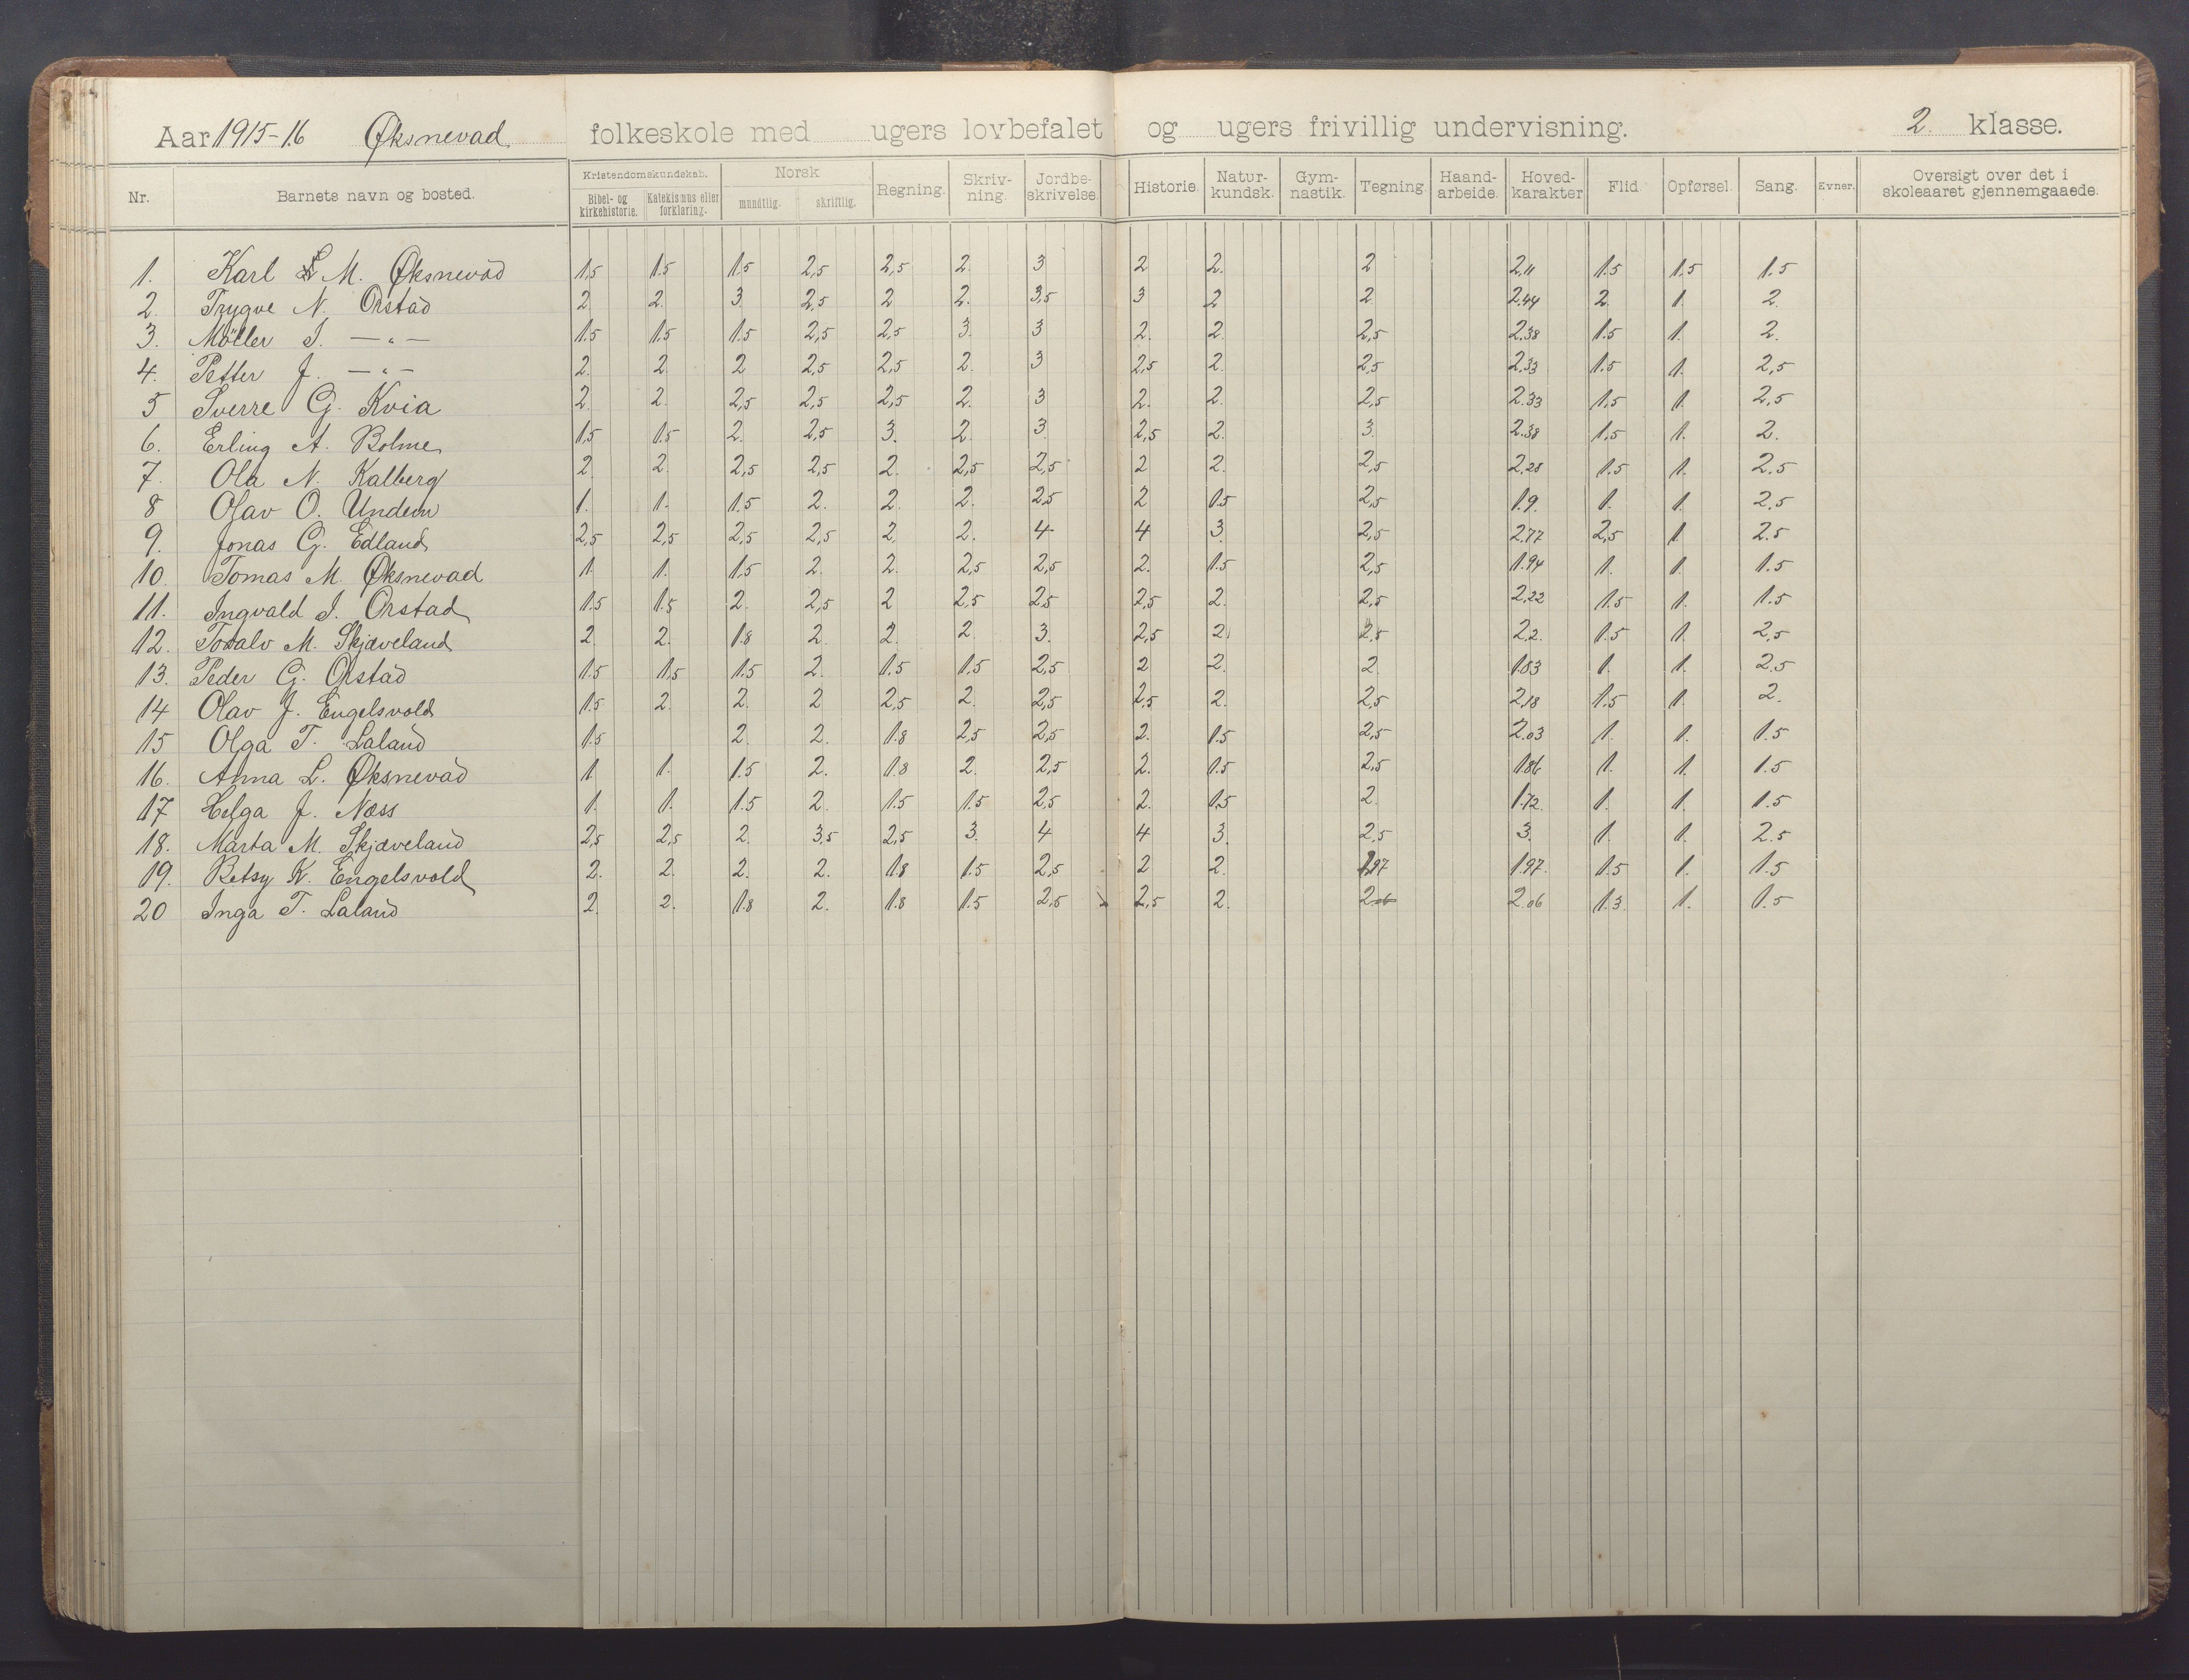 Aar 1915-16 Øksnevad folkeskole med ugers lovbefalet og ugers frivillig undervisning. 2. klasse.
Nr. Barnets navn og bosted. Kristendomskundskab. Bibel- og kirkehistorie. Katekismus eller forklaring. Norsk mundtlig. skriftlig. Regning. Skriv-ning. Jordbe-skrivelse. Historie. Natur-kundsk. Gym-nastik. Tegning. Haand-arbeide. Hoved-karakter Flid. Opførsel. Sang. Evner. Oversigt over det i skoleaaret gjennemgaaede.
1. Karl M. Øksnevad 1,5 1.5 1.5 2,5 2,5 2. 3 2 2. 2 2,11 1.5 1,5 1.5
2. Trygve N. Orstad 2 2. 3. 2,5 2 2. 3,5 3 2 2 2.44 2. 1. 2.
3. Möller I. —"— 1.5 1.5 1.5 2,5 2,5 3. 3 2. 2. 2,5 2.38 1.5 1. 2.
4. Petter J. —"— 2. 2. 2 2,5 2,5 2. 3 2,5 2. 2,5 2.33 1.5 1. 2,5
5 Sverre G. Kvia 2. 2. 2,5 2,5 2,5 2. 3 2. 2. 2,5 2.33 1,5 1. 2,5
6. Erling A. Bolme 1,5 1.5 2. 2,5 3. 2. 3. 2,5 2. 3. 2.38 1,5 1. 2.
7. Ola N. Kalberg 2 2. 2,5 2,5 2. 2,5 2,5 2 2. 2,5 2.28 1.5 1. 2,5
8 Olav O. Undem 1. 1. 1.5 2. 2. 2. 2,5 2 1.5 2,5 1.9. 1. 1. 2,5
9. Jonas G. Edland 2,5 2,5 2,5 2,5 2. 2. 4 4 3. 2,5 2.77 2,5 1 2.5
10. Tomas M. Øksnevad 1. 1. 1,5 2. 2. 2,5 2,5 2. 1.5 2,5 1.94 1. 1. 1.5
11. Ingvald I. Orstad 1.5 1.5 2. 2,5 2 2,5 2,5 2,5 2. 2,5 2,22 1.5 1. 1.5
12. Toralv M. Skjæveland 2. 2. 1.8 2. 2. 2. 3. 2,5 2. 2,5 2.2. 1.5 1. 2,5
13. Peder G. Orstad 1.5 1,5 1.5 2. 1.5 1,5 2,5 2 2. 2. 1.83 1. 1. 2.5
14 Olav J. Engelsvold 1.5 2. 2. 2 2,5 2. 2,5 2,5 2. 2,5 2,18 1.5 1. 2.
15 Olga T. Laland 1.5 2. 2. 1.8 2,5 2,5 2. 1.5 2,5 2.03 1. 1. 1.5
16. Anna L. Øksnevad 1. 1. 1.5 2. 1.8 2. 2,5 2. 1.5 2,5 1.86 1. 1. 1.5
17 Helga J. Næss 1. 1. 1.5 2. 1.5 1.5 2,5 2. 1.5 2. 1.72. 1. 1. 1.5
18. Marta M. Skjæveland 2,5 2,5 2. 3,5 2,5 3. 4 4 3. 2,5 3. 1. 1. 2.5
19. Betsy K. Engelsvold 2. 2. 2. 2. 1.8 1.5 2,5 2 2. 1,97 1.97. 1.5 1. 1.5
20 Inga T. Laland 2. 2. 1.8 2. 1.8 1.5 2,5 2,5 2. 2 2.06 1.3. 1. 1.5